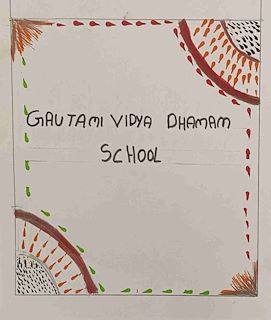 GAUTAMI VIDYA DHAMAM
SCHOOL